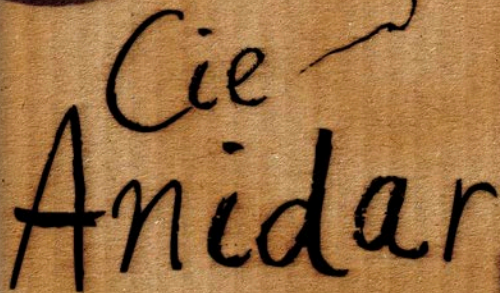 Cie
Anidar